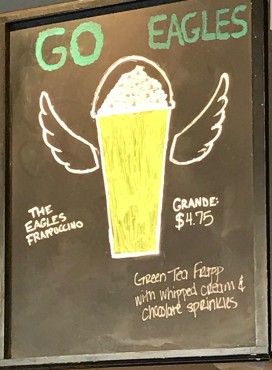 GO EAGLES
THE
EAGLES
FRAPPUCCINO
GRANDE:
$4.75
Green Tea Frapp
with whipped cream &
chocolate sprinkles